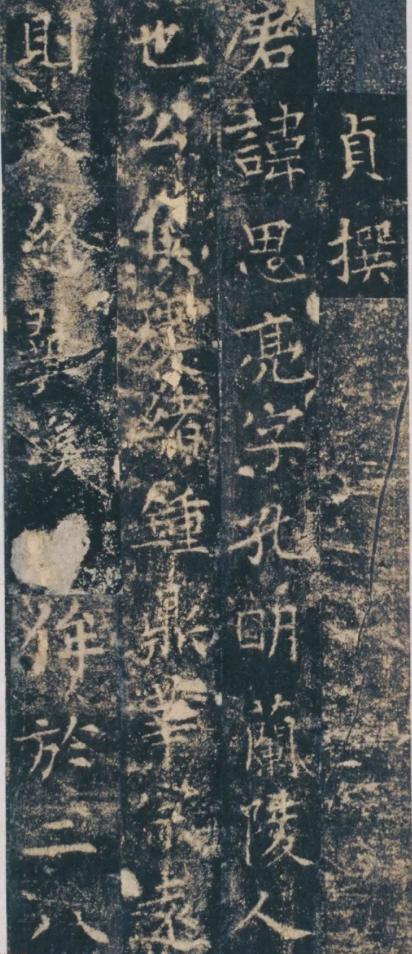 貞撰
君諱思亮字孔明蘭陵人
也公侯緒鍾鼎華宗遠
則文終翼漢侔於二八